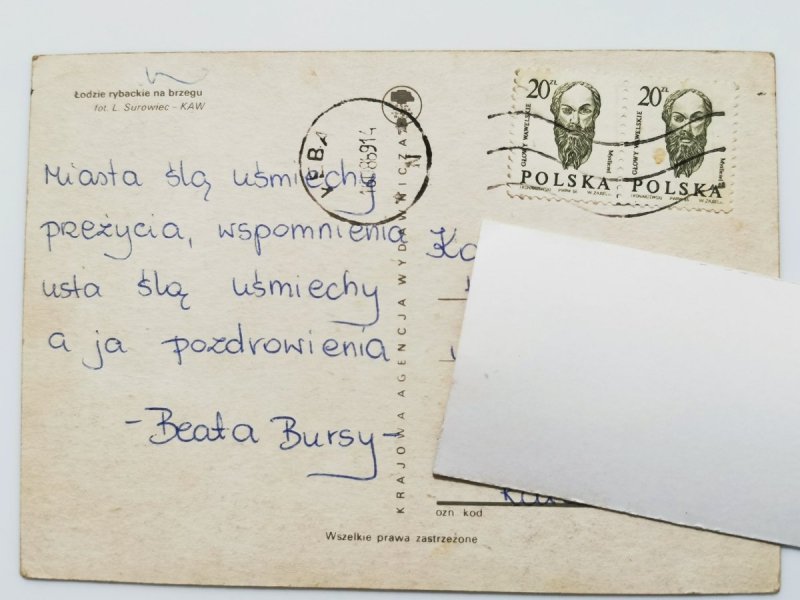 Łodzie rybackie na brzegu
fot. L. Surowiec – KAW
Miasta ślą uśmiechy
przeżycia, wspomnienia
usta ślą uśmiechy
a ja pozdrowienia
- Beata Bursy -
KRAJOWA AGENCJA WYDAWNICZA
20 ZŁ
GŁOWY WAWELSKIE
POLSKA
20 ZŁ
GŁOWY WAWELSKIE
POLSKA
ozn. kod
Wszelkie prawa zastrzeżone